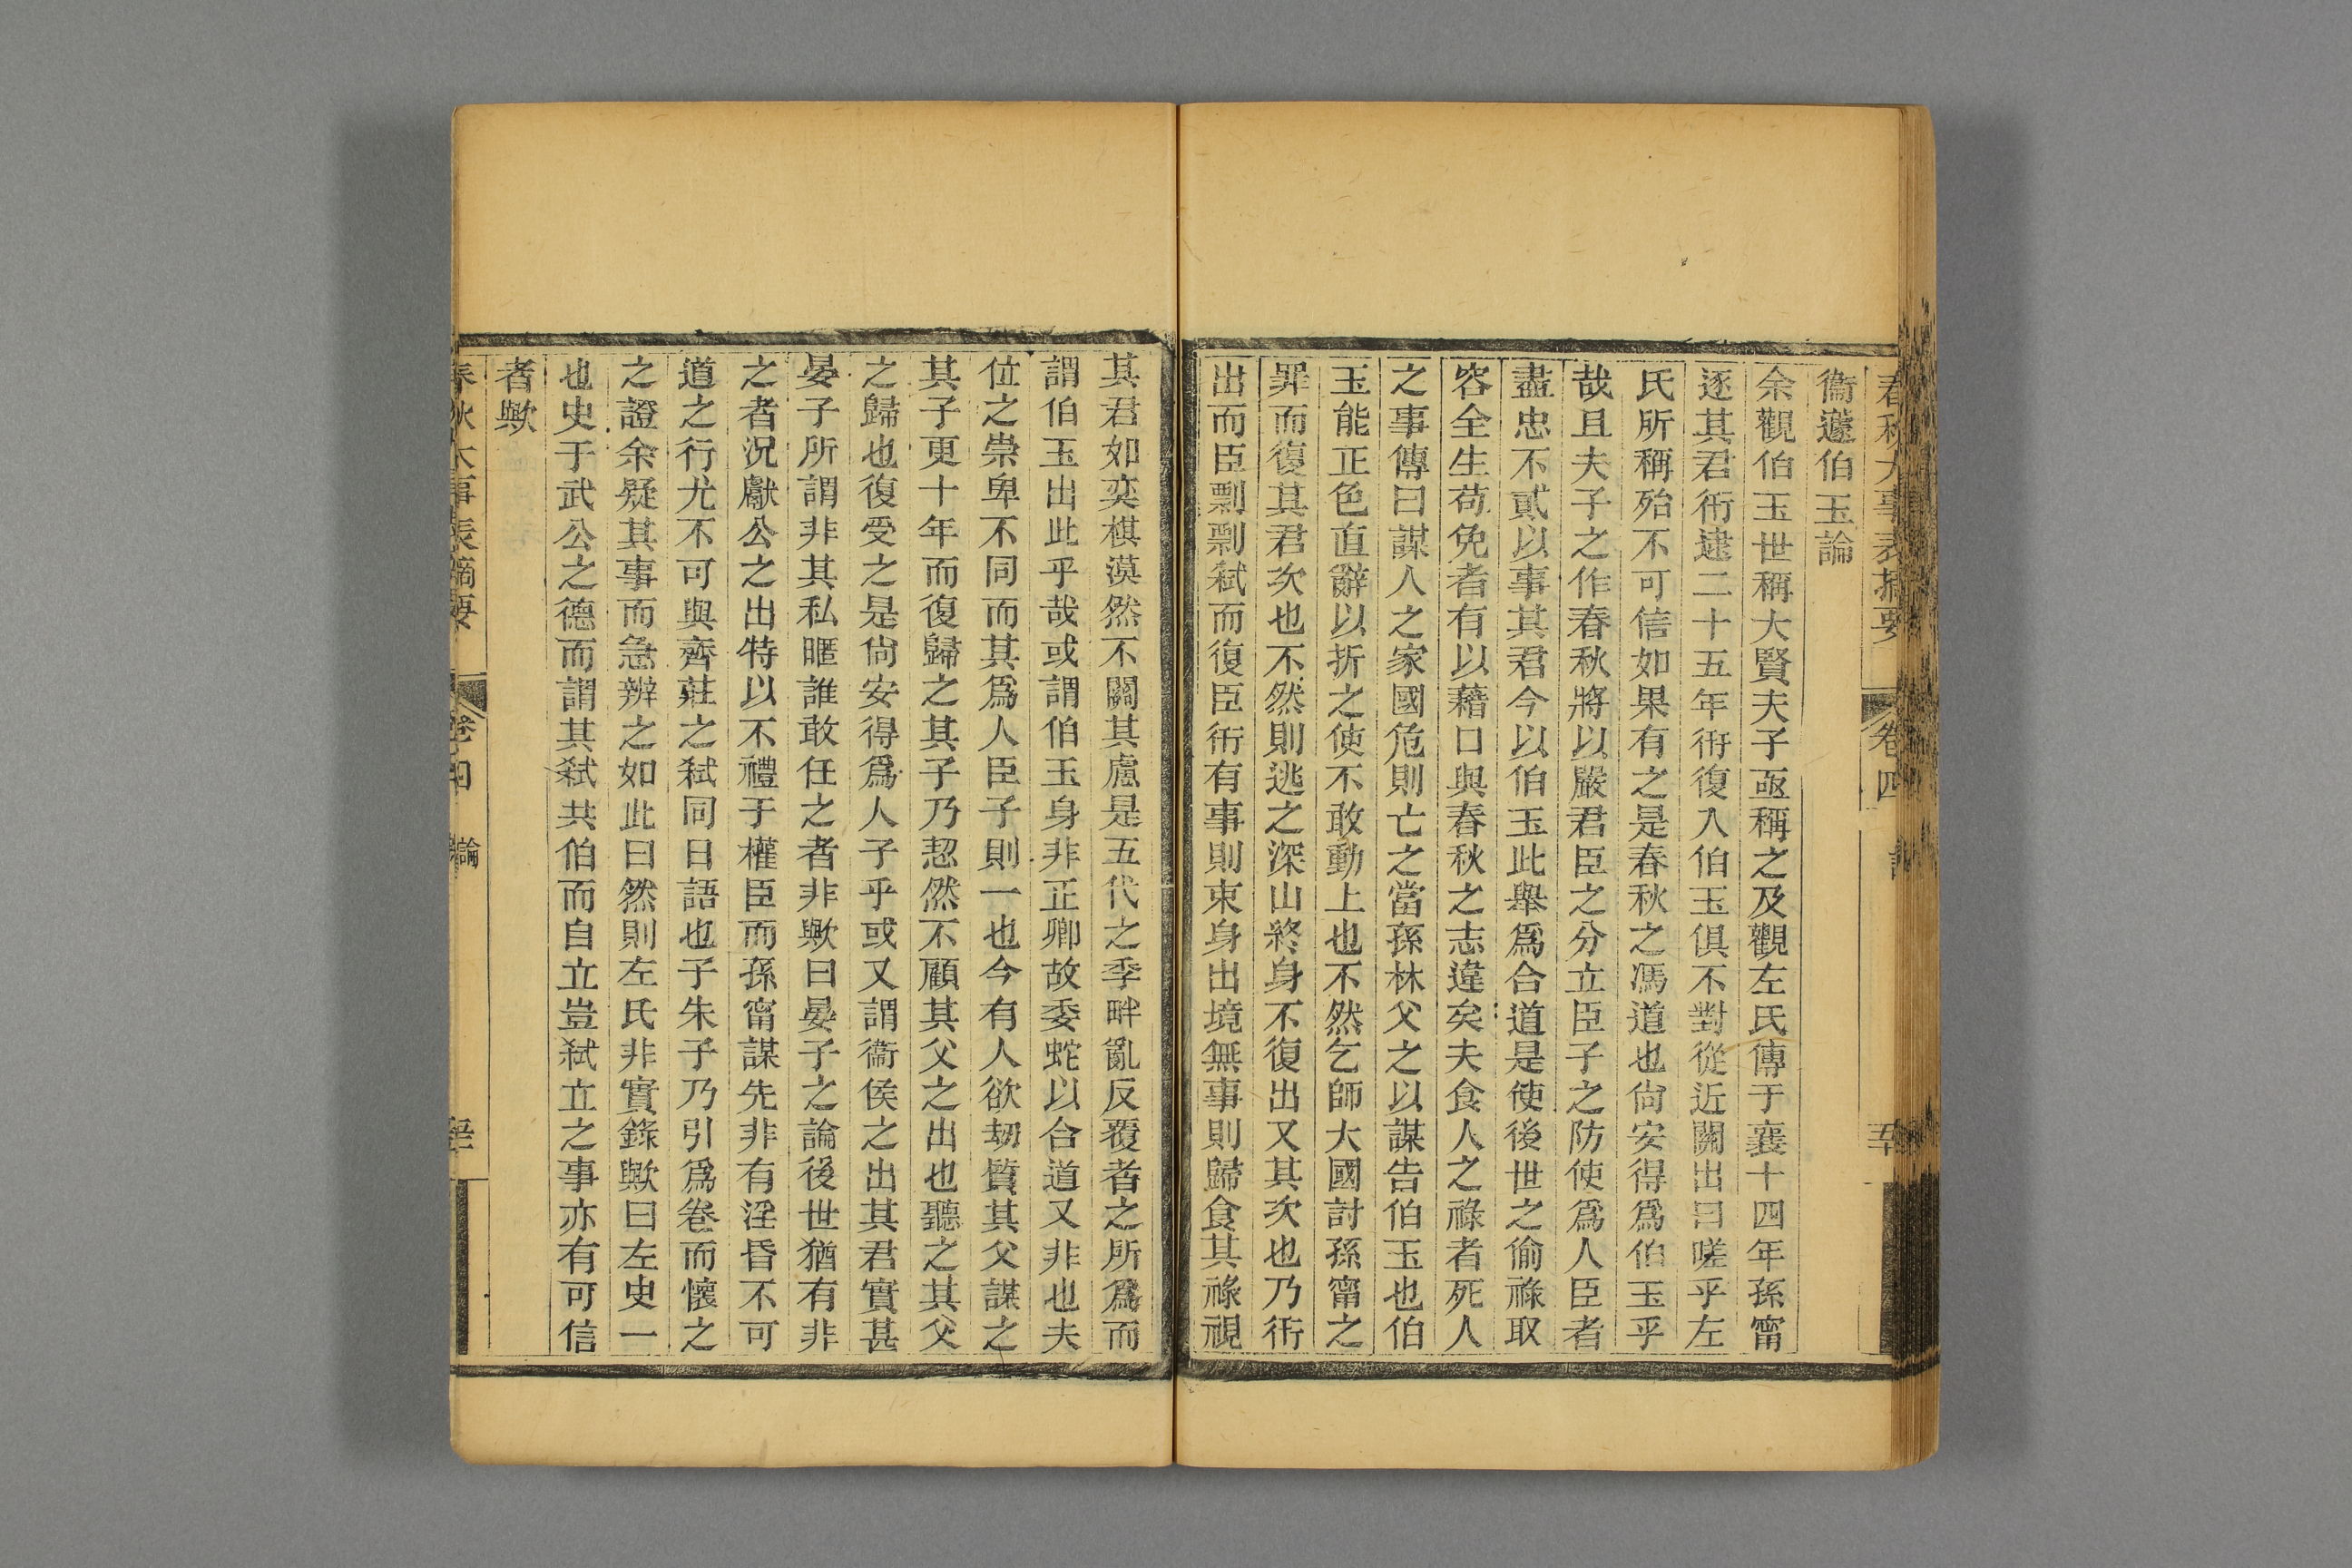 春秋大事表摘要 卷四 論
衞蘧伯玉論
余觀伯玉世稱大賢夫子亟稱之及觀左氏傳于襄十四年孫甯
逐其君衎逮二十五年衎復入伯玉俱不對從近關出曰嗟乎左
氏所稱殆不可信如果有之是春秋之馮道也尙安得爲伯玉乎
哉且夫子之作春秋將以嚴君臣之分立臣子之防使爲人臣者
盡忠不貳以事其君今以伯玉此舉爲合道是使後世之偷祿取
容全生苟免者有以藉口與春秋之志違矣夫食人之祿者死人
之事傳曰謀人之家國危則亡之當孫林父之以謀告伯玉也伯
玉能正色直辭以折之使不敢動上也不然乞師大國討孫甯之
罪而復其君次也不然則逃之深山終身不復出又其次也乃衎
出而臣剽剽弒而復臣衎有事則束身出境無事則歸食其祿視
其君如奕棋漠然不關其慮是五代之季畔亂反覆者之所爲而
謂伯玉出此乎哉或謂伯玉身非正卿故委蛇以合道又非也夫
位之崇卑不同而其爲人臣子則一也今有人欲刼質其父謀之
其子更十年而復歸之其子乃恝然不顧其父之出也聽之其父
之歸也復受之是尙安得爲人子乎或又謂衞侯之出其君實甚
晏子所謂非其私暱誰敢任之者非歟曰晏子之論後世猶有非
之者況獻公之出特以不禮于權臣而孫甯謀先非有淫昏不可
道之行尤不可與齊莊之弒同日語也子朱子乃引爲卷而懷之
之證余疑其事而急辨之如此曰然則左氏非實錄歟曰左史一
也史于武公之德而謂其弒共伯而自立豈弒立之事亦有可信
者歟
春秋大事表摘要 卷四 論